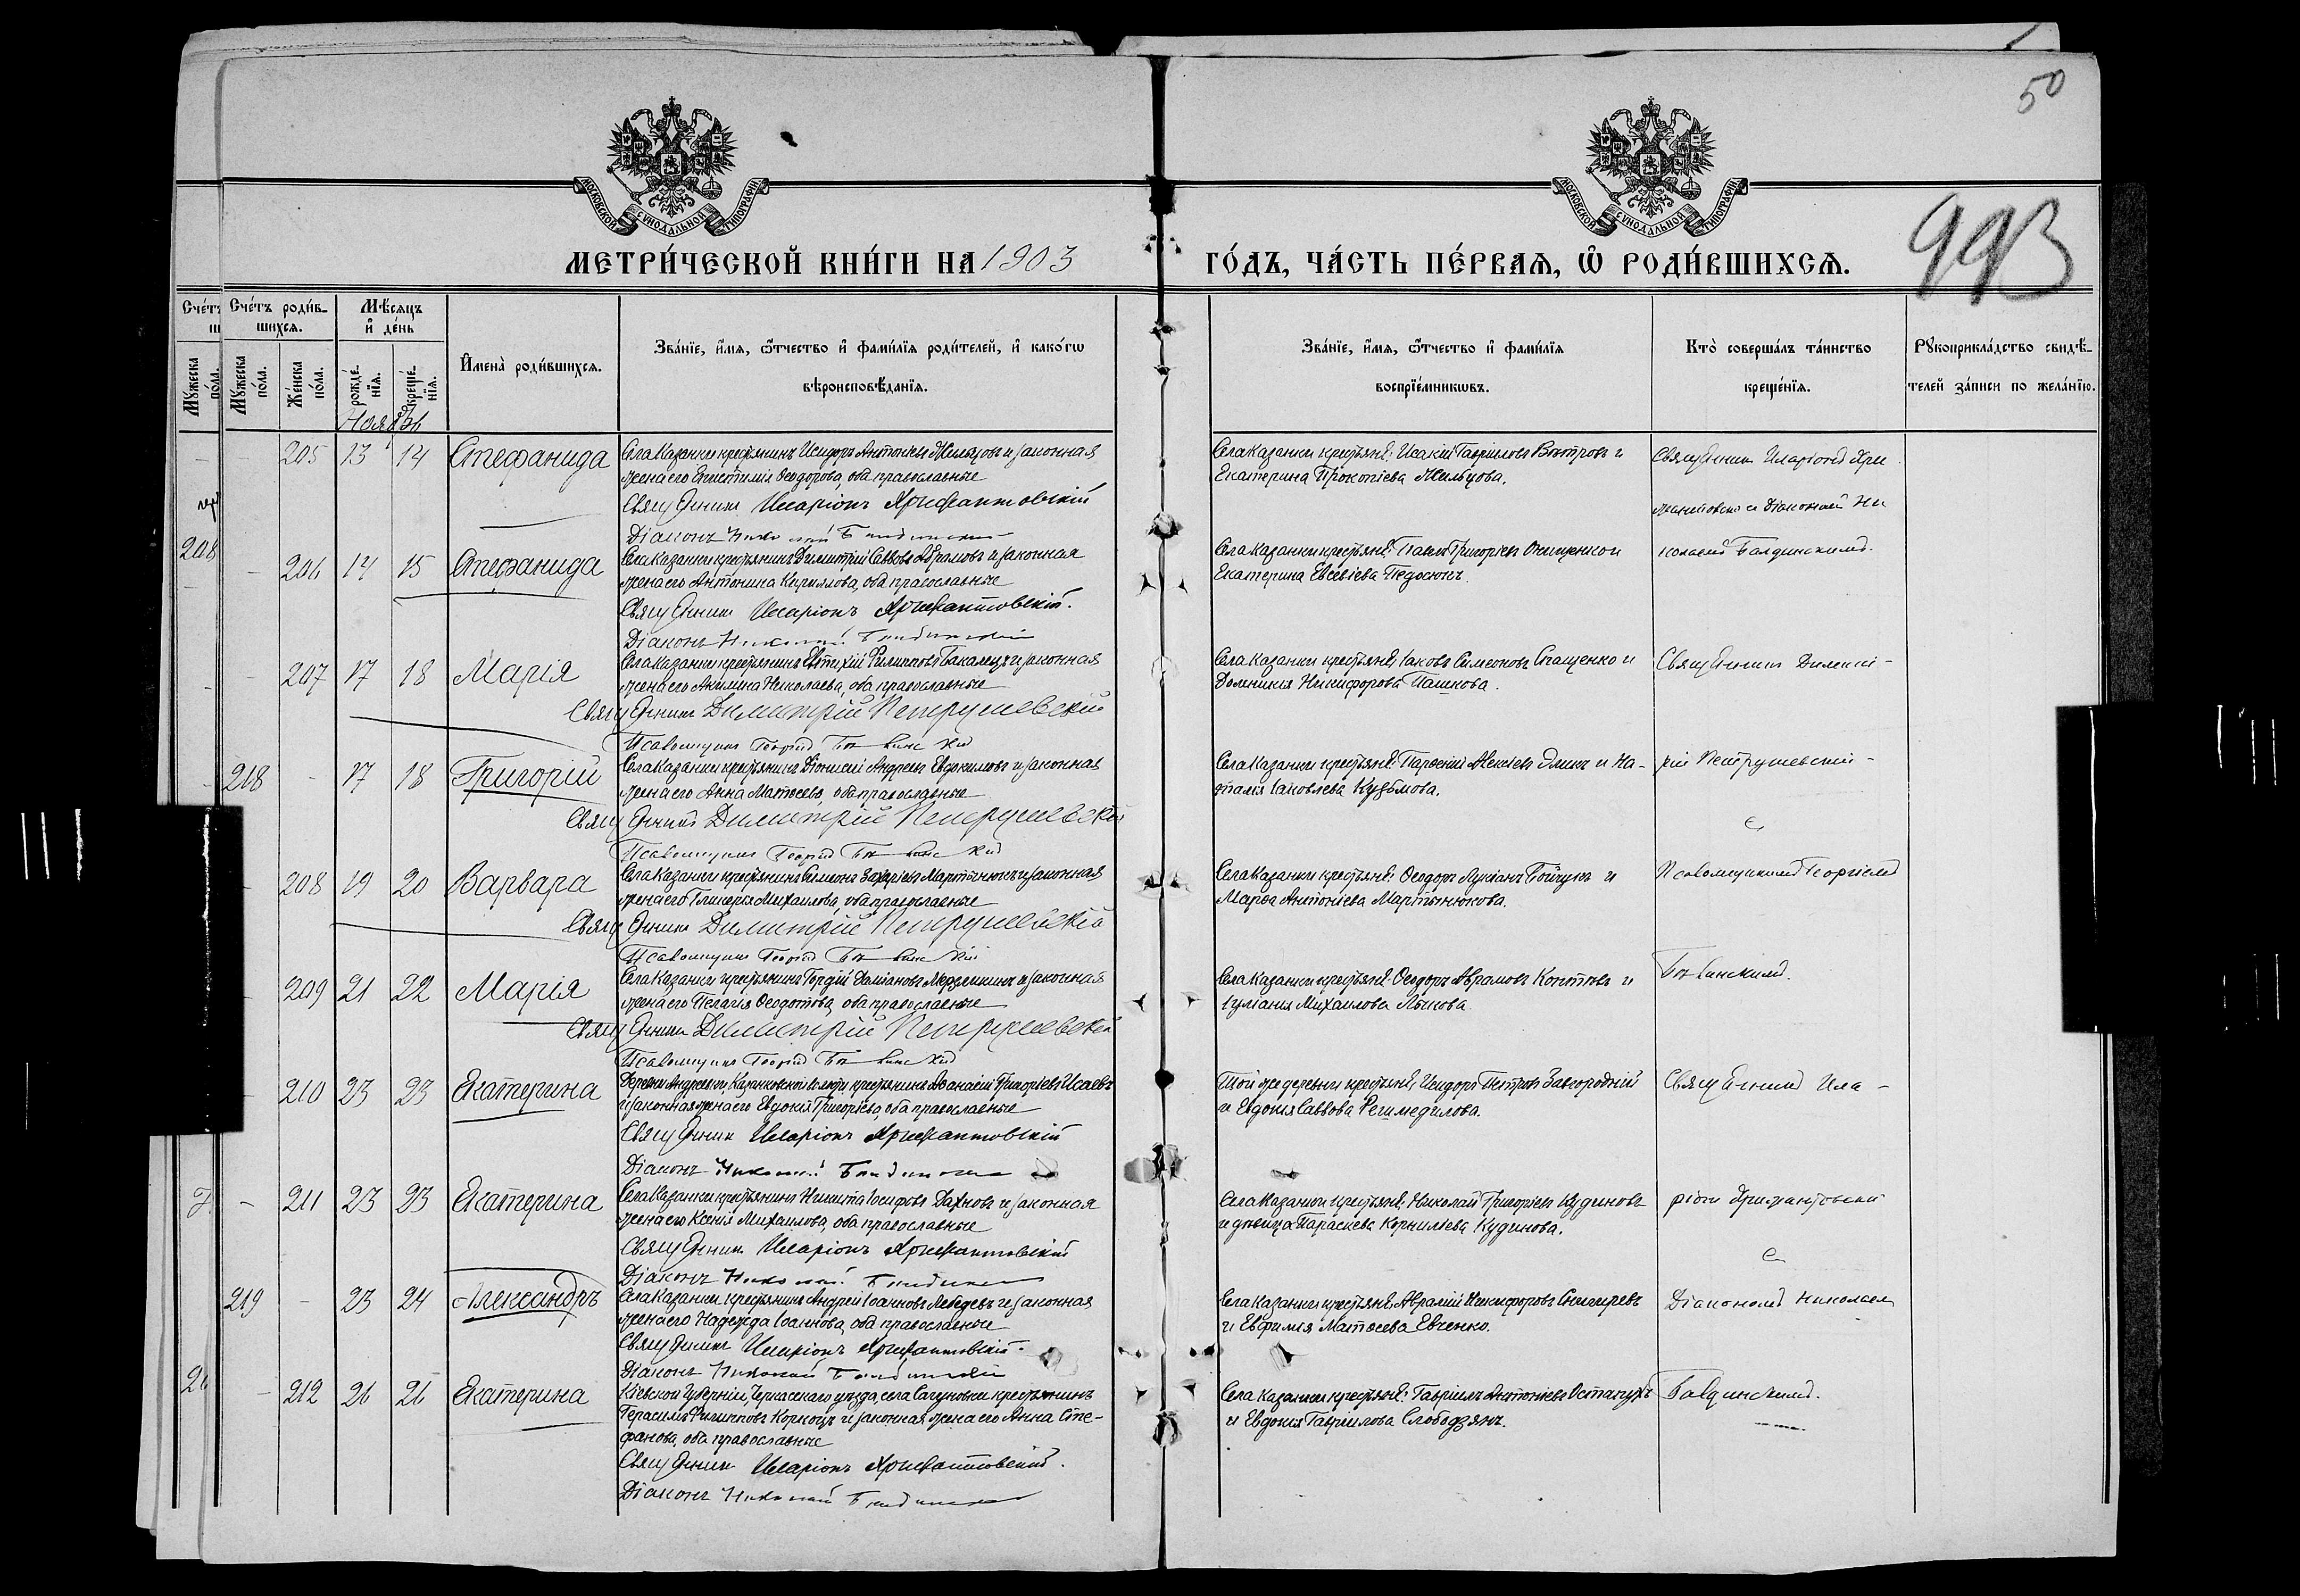 50
МОСКОВСКОЙ СѴНОДАЛЬНОЙ ТИПОГРАФІИ.
МОСКОВСКОЙ СѴНОДАЛЬНОЙ ТИПОГРАФІИ.
993
МЕТРИ́ЧЕСКОЙ КНИ́ГИ НА 1903 ГО́ДЪ, ЧА́СТЬ ПЕ́РВАѦ, Ѡ҆ РОДИ́ВШИХСѦ.
Сче́тъ роди́вшихсѧ.
Мꙋ́жеска по́ла.
Же́нска по́ла.
Мѣ́сѧцъ и҆ де́нь
рожде́нїѧ.
креще́нїѧ.
И҆мена̀ роди́вшихсѧ.
Зва́нїе, и҆́мѧ, ѻ҆́тчество и҆ фами́лїѧ роди́телей, и҆ како́гѡ
вѣроисповѣ́данїѧ.
Зва́нїе, и҆́мѧ, ѻ҆́тчество и҆ фами́лїѧ
воспрїе́мникѡвъ.
Кто̀ соверша́лъ та́инство
креще́нїѧ.
Рꙋкоприкла́дство свидѣ́телей за́писи по жела́нїю.
Ноябрь
205 13 14 Стефанида
Села Казанки крестьянинъ Исидоръ Антоніевъ Мельцовъ и законная
жена его Епистимія Ѳеодорова, оба православные
Священникъ Иларіонъ Хрисанфовскій
Діаконъ Николай
Села Казанки крестьяне: Исакій Гавріиловъ Вѣтровъ и
Екатерина Прокопіева Мельцова.
Священникъ Иларіонъ Хри
и Діаконъ Ни
208
206 14 15 Стефанида
Села Казанки крестьянинъ Димитрій Саввовъ Абрамовъ и законная
жена его Антонина Кириллова, оба православные
Священникъ Иларіонъ Хрисанфовскій.
Діаконъ Николай
Села Казанки крестьяне: Павелъ Григоріевъ Онищенко и
Екатерина Евсевіева Педосюкъ.
колаемъ
207 17 18 Марія
Села Казанки крестьянинъ Евтихій Филипповъ Бакалецъ и законная
жена его Акилина Николаева, оба православные
Священникъ Димитрій Петрушевскій
Псаломщикъ Георгій
Села Казанки крестьяне: Іаковъ Симеоновъ Стащенко и
Домникія Никифорова Пашкова.
Священникъ Димит-
218 - 17 18 Григорій
Села Казанки крестьянинъ Діонисій Андреевъ Евдокимовъ и законная
жена его Анна Матѳеева, оба православные
Священникъ Димитрій Петрушевскій
Псаломщикъ Георгій
Села Казанки крестьяне: Парѳеній Алексіевъ и На-
талія Іаковлева Кузьмова.
рій Петрушевскій -
с
208 19 20 Варвара
Села Казанки крестьянинъ Симеонъ Захаріевъ Мартынюкъ и законная
жена его Гликерія Михаилова, оба православные
Священникъ Димитрій Петрушевскій
Псаломщикъ Георгій
Села Казанки крестьяне: Ѳеодоръ Лукіанъ Бойчукъ и
Марѳа Антоніева Мартынюкова.
Псаломщикомъ Георгіемъ
209 21 22 Марія
Села Казанки крестьянинъ Гордій Даміановъ Мерземкинъ и законная
жена его Пелагія Ѳеодотова, оба православные
Священникъ Димитрій Петрушевскій
Псаломщикъ Георгій
Села Казанки крестьяне: Ѳеодоръ Аврамовъ Коптевъ и
Іуліанія Михаилова Лыкова.
210 23 23 Екатерина
Деревни Андреевки, Казанковской волости, крестьянинъ Аѳанасій Григоріевъ Исаевъ
и законная жена его Евдокія Григоріева, оба православные
Священникъ Иларіонъ Хрисанфовскій
Діаконъ Николай
Той же деревни крестьяне: Исидоръ Петровъ Завгородній
и Евдокія Саввова
Священникъ Ила-
- 211 23 23 Екатерина
Села Казанки крестьянинъ Никита Іосифовъ Дахновъ и законная
жена его Ксенія Михаилова, оба православные
Священникъ Иларіонъ Хрисанфовскій
Діаконъ Николай
Села Казанки крестьяне: Николай Григоріевъ Кудиновъ
и дѣвица Параскева Корнилиева Кудинова.
ріонъ
с
219 - 23 24 Александръ
Села Казанки крестьянинъ Андрей Іоанновъ Лебедевъ и законная
жена его Надежда Іоаннова, оба православные
Священникъ Иларіонъ Хрисанфовскій.
Діаконъ Николай
Села Казанки крестьяне: Авраамій Никифоровъ Снигиревъ
и Евфимія Матѳеева Евченко.
Діакономъ Николаемъ
- 212 26 26 Екатерина
Кіевской губерніи, Черкасскаго уѣзда, села Сагуновки крестьянинъ
Герасимъ Филипповъ и законная жена его Анна Сте-
фанова, оба православные
Священникъ Иларіонъ Хрисанфовскій.
Діаконъ Николай
Села Казанки крестьяне: Гавріилъ Антоніевъ Остапчукъ
и Евдокія Гавріилова Слободзянъ.